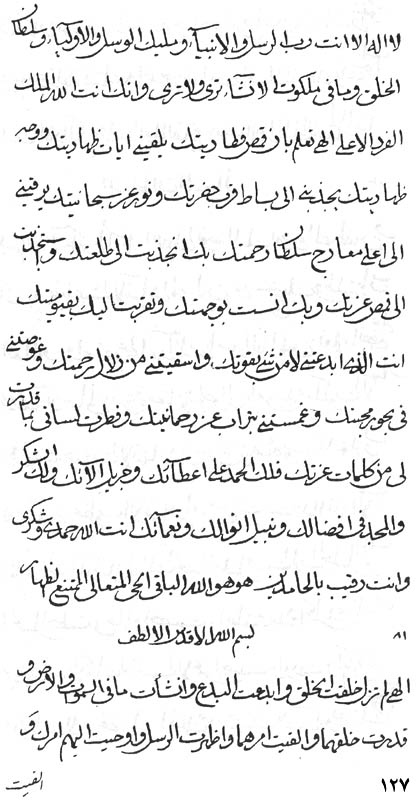 لا اله الا انت رب الرسل والانبياء ومليك الوسل والاولياء وسلطان
الخلق وما فى ملكوت الانشاء ترى ولا ترى وانك انت الله الملك
الفرد الاعلى الهى تعلم بان قمص يلقينى ايات ظهاريتك ووجه
ظهاريتك يجذبنى الى بساط قرب حضرتك ونور عز سبحانيتك يرقينى
الى اعلى معارج سلطان رحمتك بك انجذبت الى طلعتك وبك
الى قمص عزتك وبك انست بوجهتك وتقربت اليك بقيوميتك
انت الذى ابدعتنى لا من شئ بقوتك واسقيتنى من زلال رحمتك وغوصتنى
فى بحور محبتك وغمستنى عز رحمانيتك وفطرت لسانى بما قدرت
لى من كلمات عزتك فلك الحمد على اعطائك وجزيل آلائك ولك الشكر
والمجد فى افضالك وجميل انوالك ونعمائك انت الله حمدى وشكرى
وانت رقيب بالحامدين هو هو الله الباقى الحى المتعالى الممتنع الظهار
٨١ بسم الله الاقدر الالطف
الهى لم تزل خلقت الخلق وابدعت البدع وانشأت ما فى السموات والارض و
قدرت خلقهما والقيت امرهما واظهرت الرسل واوحيت اليهم امرك و
١٢٧ القيت